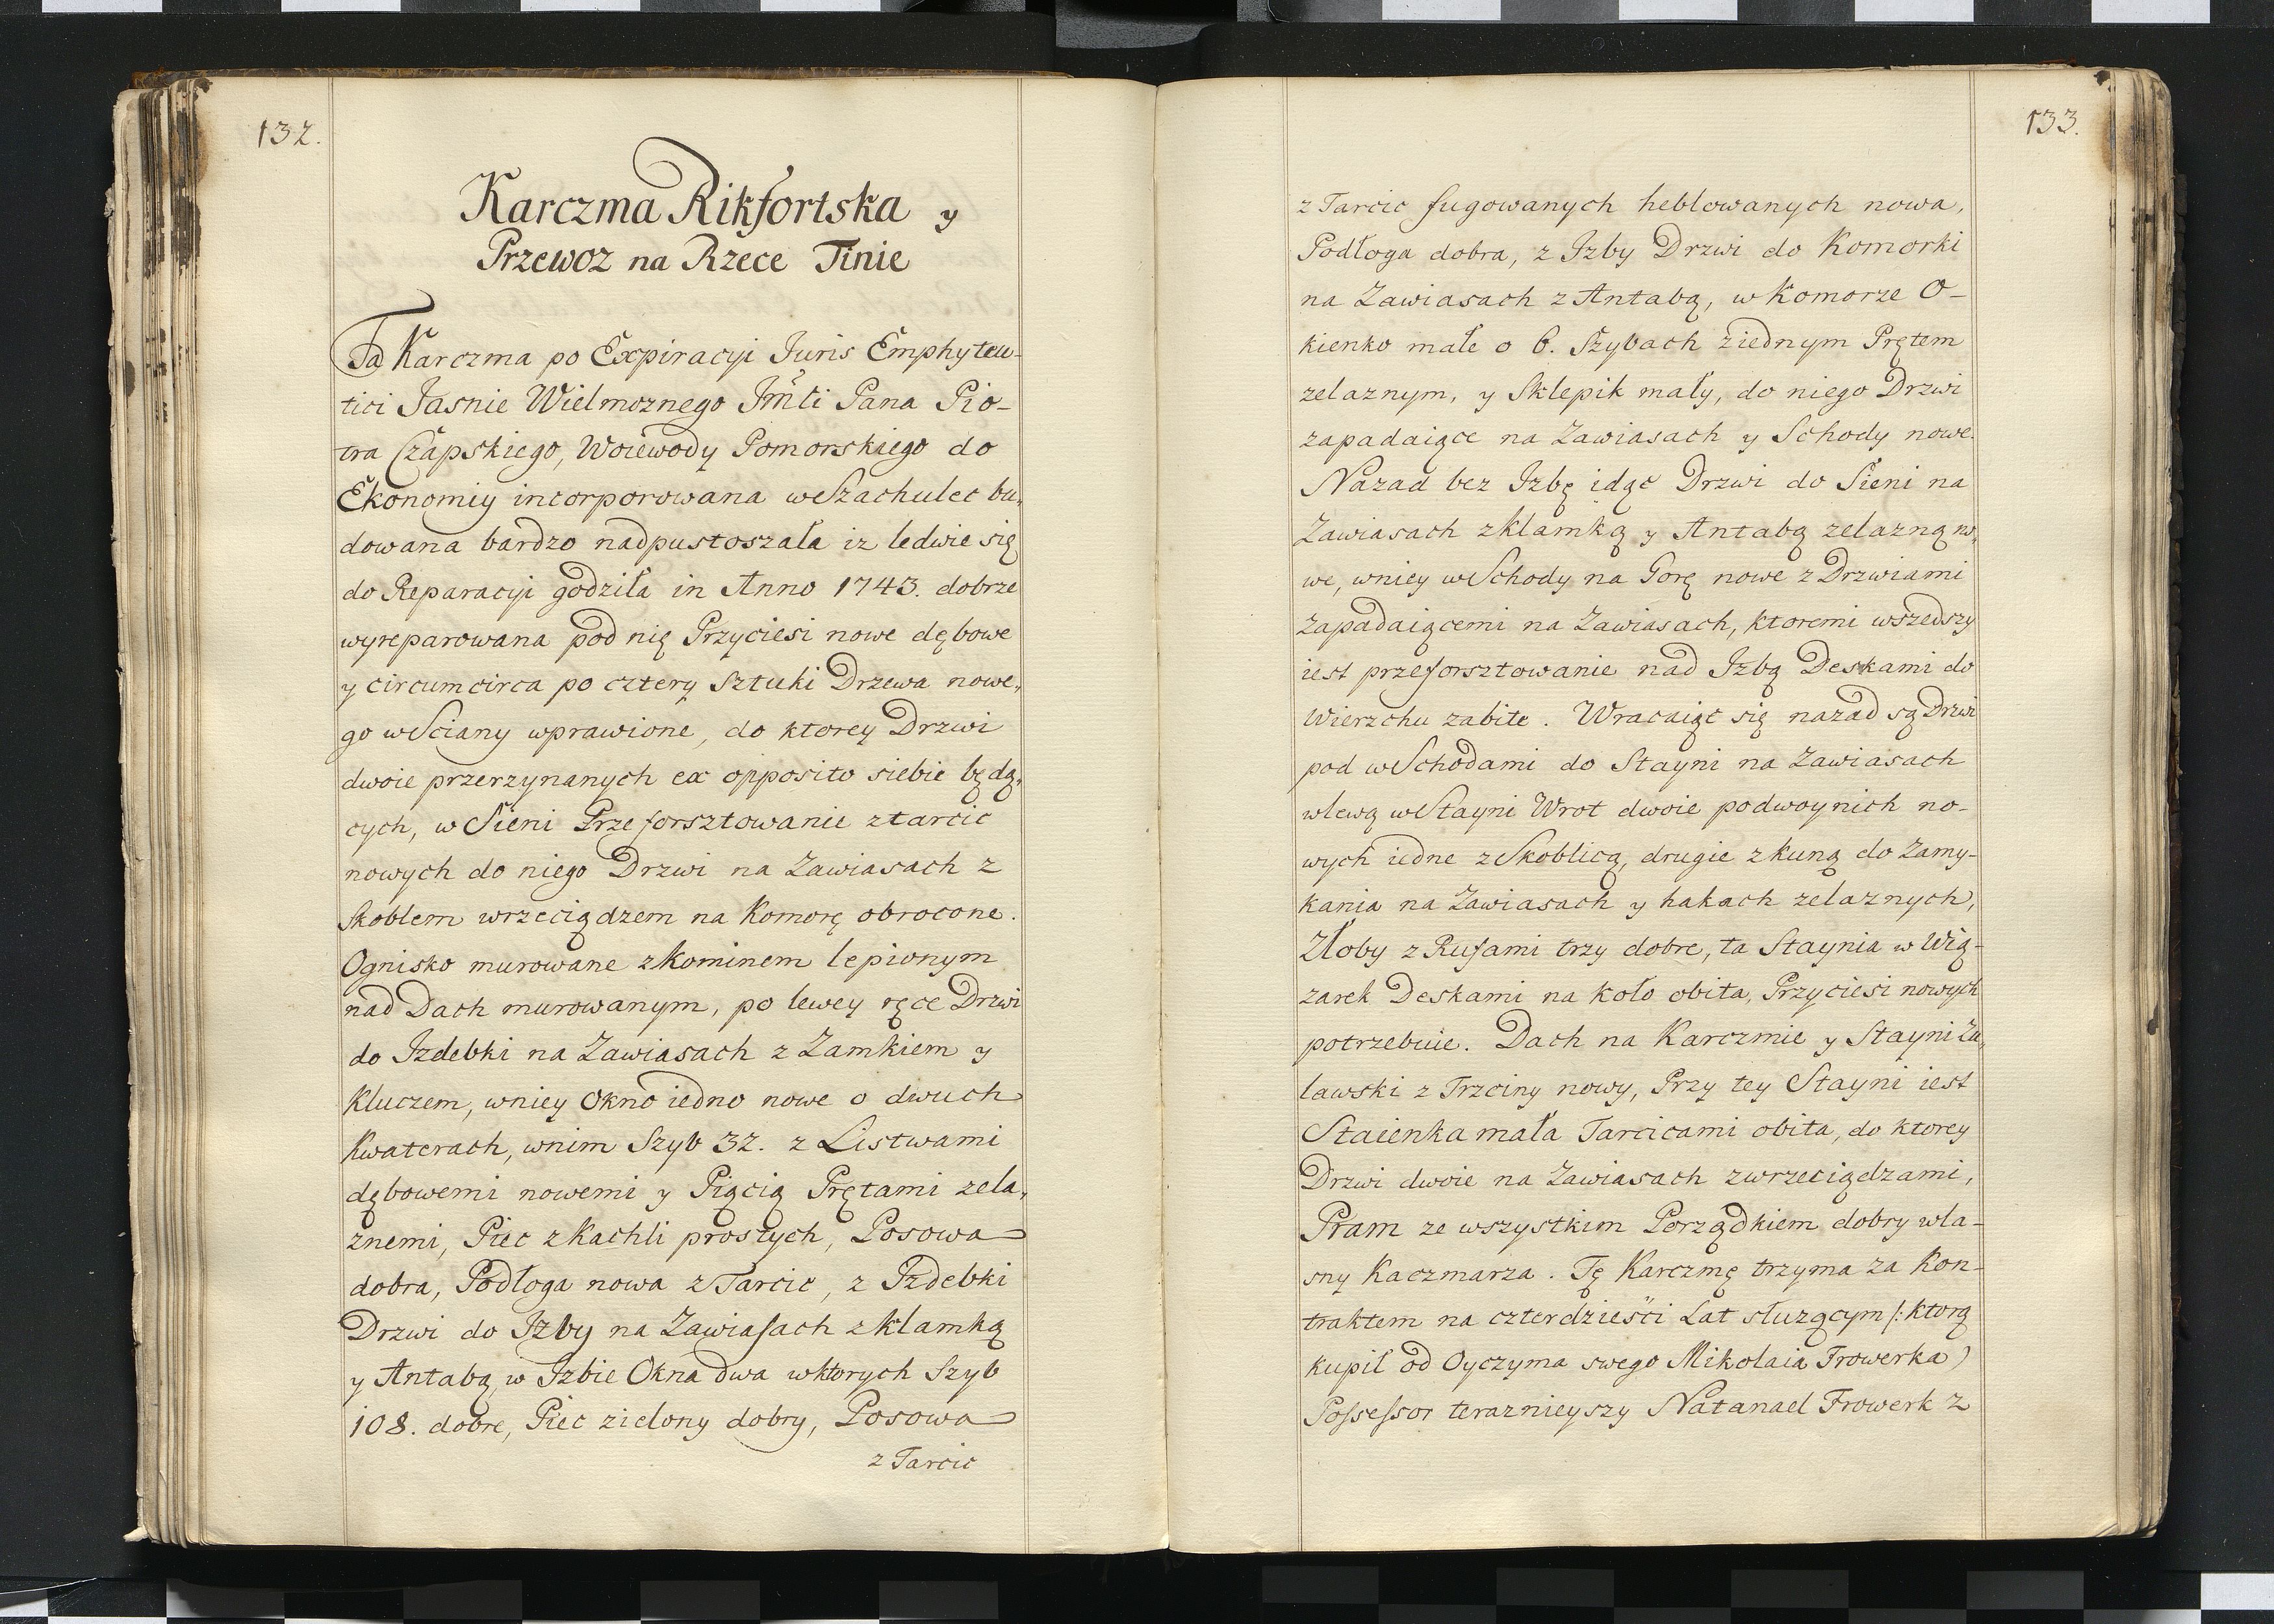 132.
Karczma Rikfortska y
Przewoz na Rzece Tinie
Ta Karczma po Expiracyi Juris Emphyteu-
tici Jasnie Wielmoznego Jmći Pana Pio-
tra Czapskiego, Woiewody Pomorskiego do
Ekonomiy incorporowana w Szachulec bu,
dowana bardzo nadpustoszała iz ledwie się
do Reparacyi godziła in Anno 1743. dobrze
wyreparowana pod nię Przyciesi nowe dębowe
y circumcirca po cztery Sztuki Drzewa nowe,
go w Sciany wprawione, do ktorey Drzwi
dwoie przerzynanych ex opposito siebie będą,
cych, w Sieni Przeforsztowanie z tarcic
nowych do niego Drzwi na Zawiasach z
Skoblem wrzeciądzem na Komorę obrocone.
Ognisko murowane z Kominem lepionym
nad Dach murowanym, po lewey ręce Drzwi
do Izdebki na Zawiasach z Zamkiem y
Kluczem, wniey Okno iedno nowe o dwuch
Kwaterach, wnim Szyb 32. z Listwami
dębowemi nowemi y Piącią Prętami zela,
znemi, Piec z Kachli prostych, Posowa
dobra, Podłoga nowa z Tarcic, z Izdebki
Drzwi do Izby na Zawiasach z klamką
y Antabą, w Izbie Okna dwa wktorych Szyb
108. dobre, Piec zielony dobry, Posowa
z Tarcic
133.
z Tarcic fugowanych heblowanych nowa,
Podłoga dobra, z Izby Drzwi do Komorki
na Zawiasach z Antabą, w Komorze O-
kienko małe o 6. Szybach ziednym Prętem
zelaznym, y Sklepik mały, do niego Drzwi
zapadaiące na Zawiasach y Schody nowe.
Nazad bez Izbę idąc Drzwi do Sieni na
Zawiasach z klamką y Antabą zelazną no,
we, wniey wSchody na Gorę nowe z Drzwiami
zapadaiącemi na Zawiasach, ktoremi wszedszy
iest przeforsztowanie nad Izbą Deskami do
Wierzchu zabite. Wracaiąc się nazad są Drzwi
pod wSchodami do Stayni na Zawiasach
wlewą wStayni Wrot dwoie podwoynich no-
wych iedne z Skoblicą, drugie z kuną do Zamy-
kania na Zawiasach y hakach zelaznych,
Złoby z Rufami trzy dobre, ta Staynia w Wią-
zarek Deskami na koło obita, Przyciesi nowych
potrzebuie. Dach na Karczmie y Stayni Zu,
lawski z Trzciny nowy, Przy tey Stayni iest
Staienka mała Tarcicami obita, do ktorey
Drzwi dwoie na Zawiasach zwrzeciądzami,
Pram ze wszystkim Porządkiem dobry wła-
sny Kaczmarza. Tę Karczmę trzyma za Kon-
traktem na czterdzieści Lat służącym /: ktorą
kupił od Oyczyma swego Mikolaia Frowerka)
Possessor teraznieyszy Natanael Frowerk z